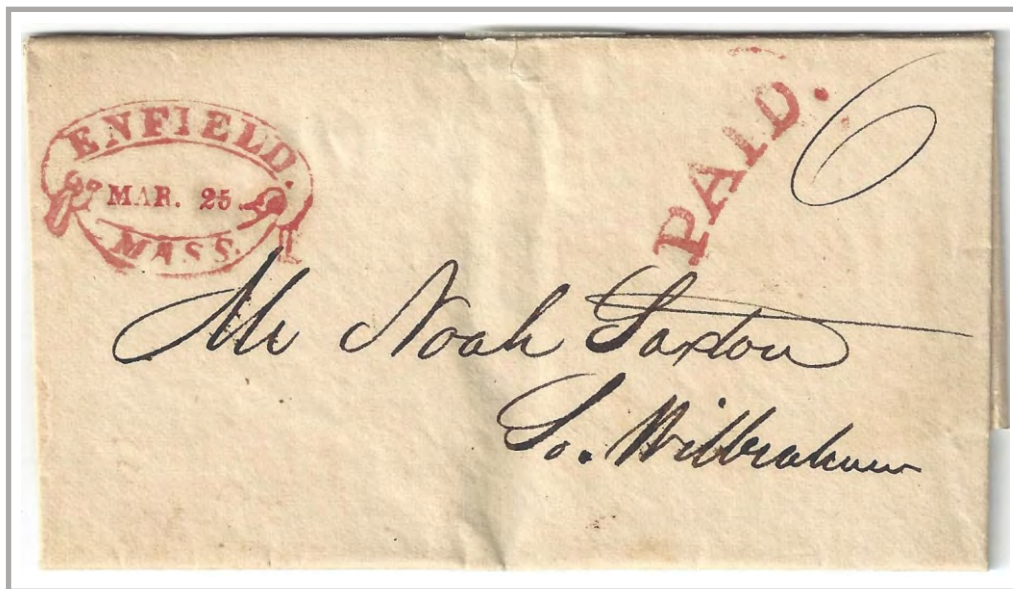 ENFIELD.
MAR. 25.
MASS.
PAID.
6
Mr Noah Saxton
So. Wilbraham